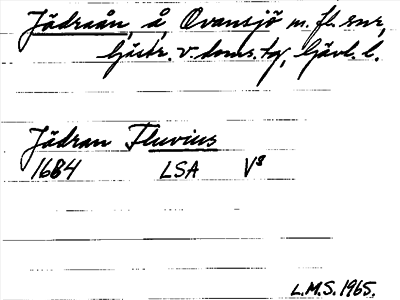 Jädraån, å, Ovansjö m. fl. snr,
Gästr. v. doms. tg, Gävl. l.
Jädran Fluvius
1684 LSA V8
L.M.S. 1965.